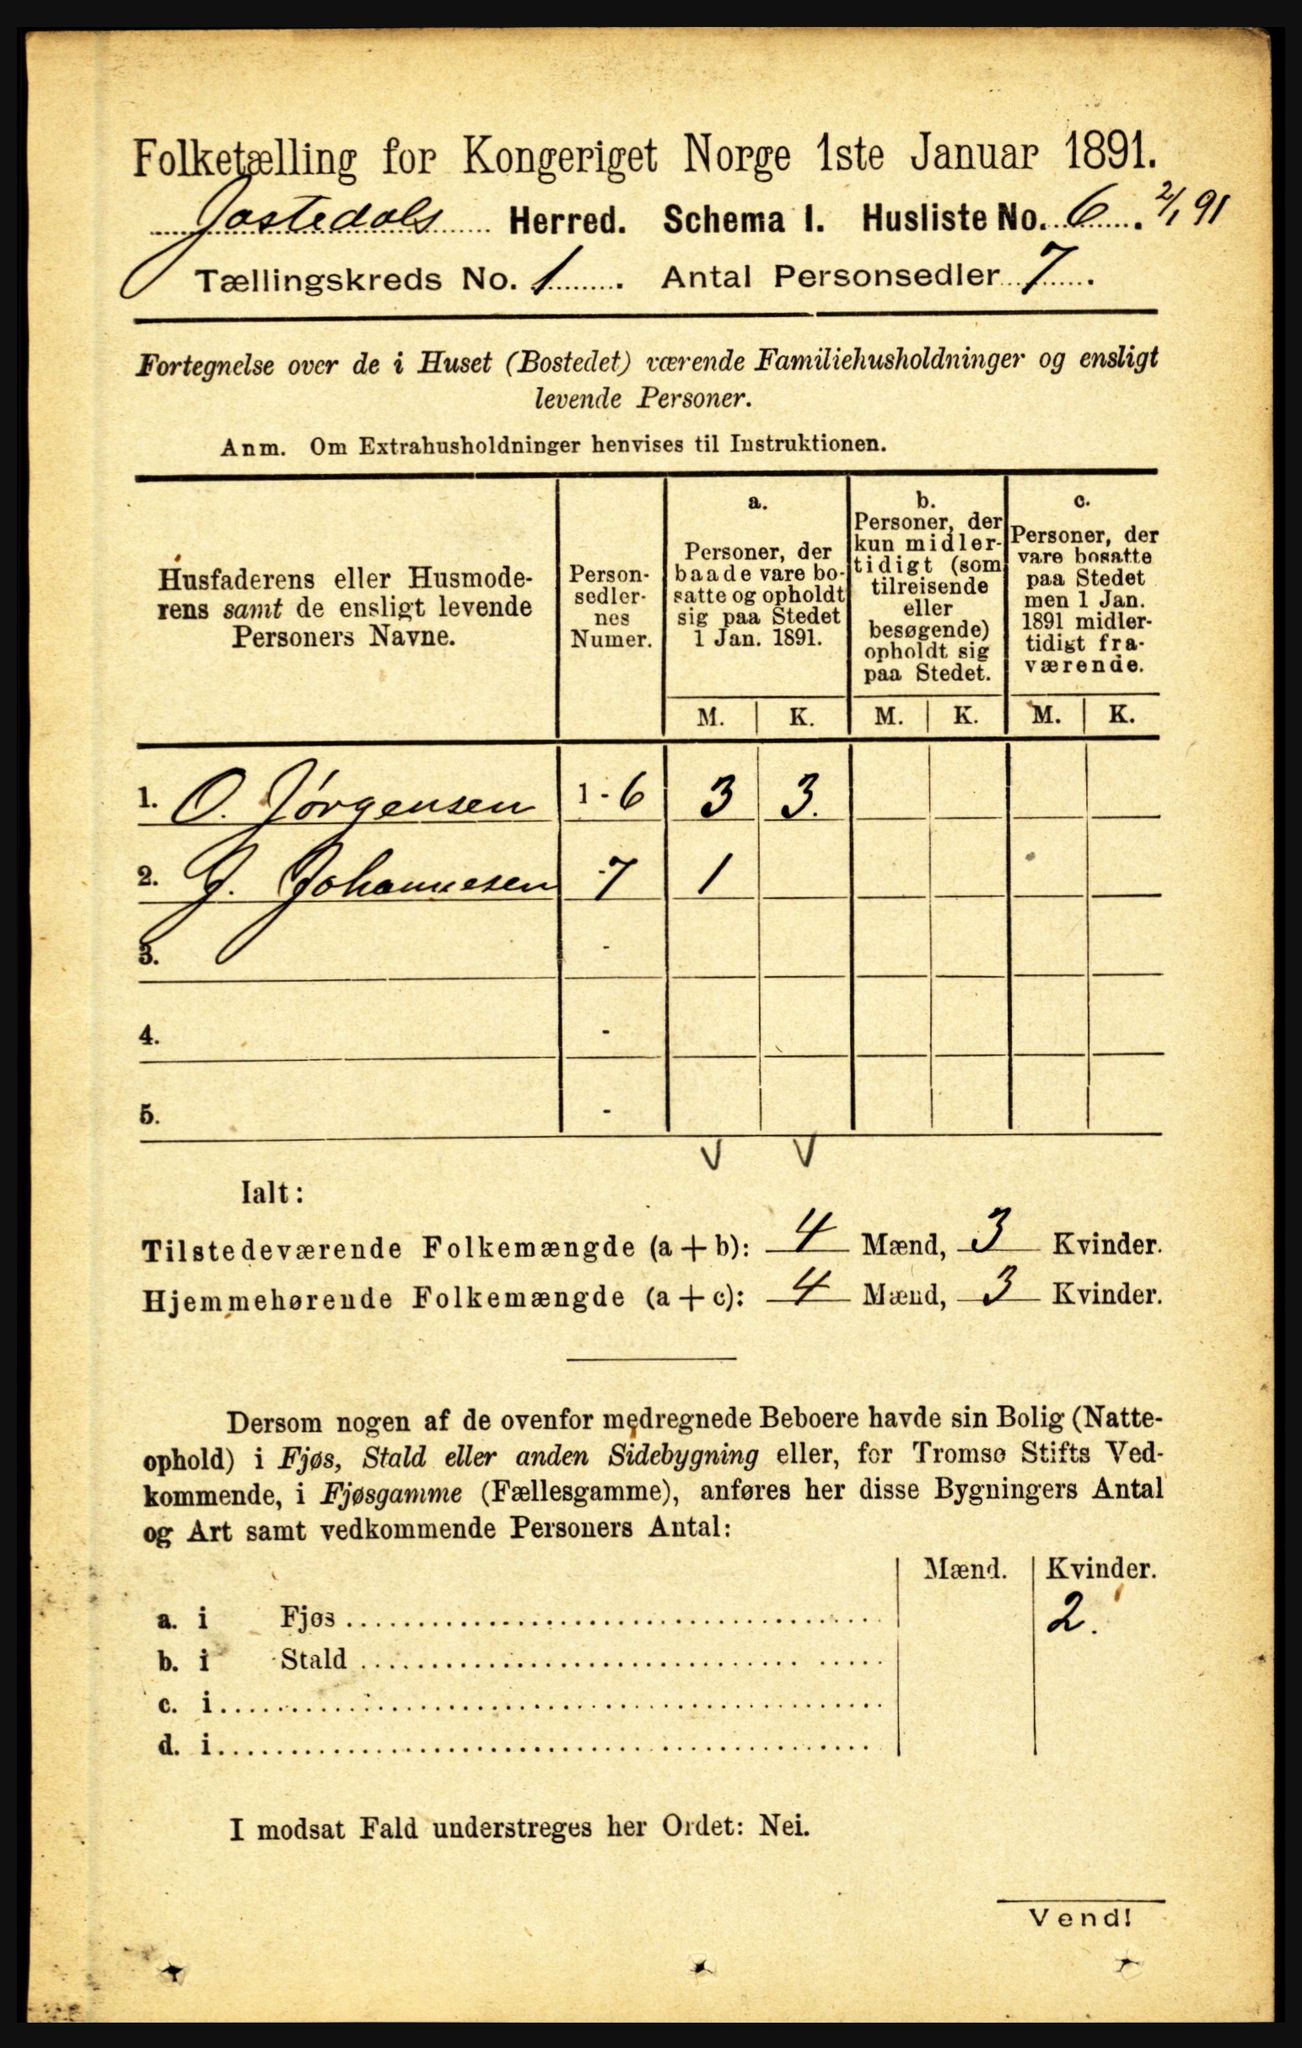 Folketælling for Kongeriget Norge 1ste Januar 1891.
Jostedals Herred. Schema I. Husliste No. 6. 2/1 91
Tællingskreds No. 1. Antal Personsedler 7.
Fortegnelse over de i Huset (Bostedet) værende Familiehusholdninger og ensligt
levende Personer.
Anm. Om Extrahusholdninger henvises til Instruktionen.
Husfaderens eller Husmode-
rens samt de ensligt levende
Personers Navne.
Person-
sedler-
nes
Numer.
a.
Personer, der
baade vare bo-
satte og opholdt
sig paa Stedet
1 Jan. 1891.
b.
Personer, der
kun midler-
tidigt (som
tilreisende
eller
besøgende)
opholdt sig
paa Stedet.
c.
Personer, der
vare bosatte
paa Stedet
men 1 Jan.
1891 midler-
tidigt fra-
værende.
M. K. M. K. M. K.
1. O. Jørgensen 1 - 6 3 3.
2. J. Johannesen - 7 1
3. -
4. -
5. -
V V
Ialt:
Tilstedeværende Folkemængde (a + b): 4 Mænd, 3 Kvinder.
Hjemmehørende Folkemængde (a + c): 4 Mænd, 3 Kvinder.
Dersom nogen af de ovenfor medregnede Beboere havde sin Bolig (Natte-
ophold) i Fjøs, Stald eller anden Sidebygning eller, for Tromsø Stifts Ved-
kommende, i Fjøsgamme (Fællesgamme), anføres her disse Bygningers Antal
og Art samt vedkommende Personers Antal:
Mænd. Kvinder.
a. i Fjøs 2.
b. i Stald
c. i
d. i
I modsat Fald understreges her Ordet: Nei.
Vend!